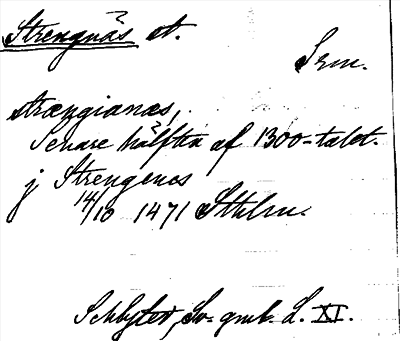 Strengnäs st.
Srm.
strængianæs,
Senare hälften af 1300-talet.
j Strengenes
14/10 1471 Sthlm.
Schlyter, Sv. gml. L. XI.